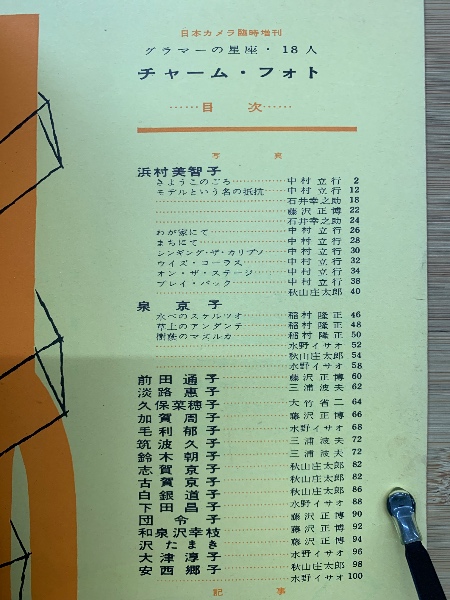 日本カメラ臨時増刊
グラマーの星座・18人
チャーム・フォト
……目 次……
写 真
浜村美智子
きょうこのごろ……中村立行 2
モデルという名の抵抗……中村立行 12
……石井幸之助 18
……藤沢正博 22
……石井幸之助 24
わが家にて……中村立行 26
まちにて……中村立行 28
シンギング・ザ・カリプソ……中村立行 30
ウイズ・コーラス……中村立行 32
オン・ザ・ステージ……中村立行 34
プレイ・バック……中村立行 38
……秋山庄太郎 40
泉 京 子
水べのスケルツオ……稲村隆正 46
草上のアンダンテ……稲村隆正 48
樹蔭のマズルカ……稲村隆正 50
……水野イサオ 52
……秋山庄太郎 54
……水野イサオ 58
前田通子……藤沢正博 60
淡路恵子……三浦波夫 62
久保菜穂子……大竹省二 64
加賀周子……藤沢正博 66
毛利郁子……水野イサオ 68
筑波久子……三浦波夫 72
鈴木朝子……三浦波夫 72
志賀京子……秋山庄太郎 82
古賀京子……秋山庄太郎 82
白銀道子……秋山庄太郎 86
下田昌子……水野イサオ 88
団 令 子……藤沢正博 90
和泉沢幸枝……藤沢正博 92
沢たまき……藤沢正博 94
大津淳子……水野イサオ 96
安西郷子……秋山庄太郎 98
……水野イサオ 100
記 事